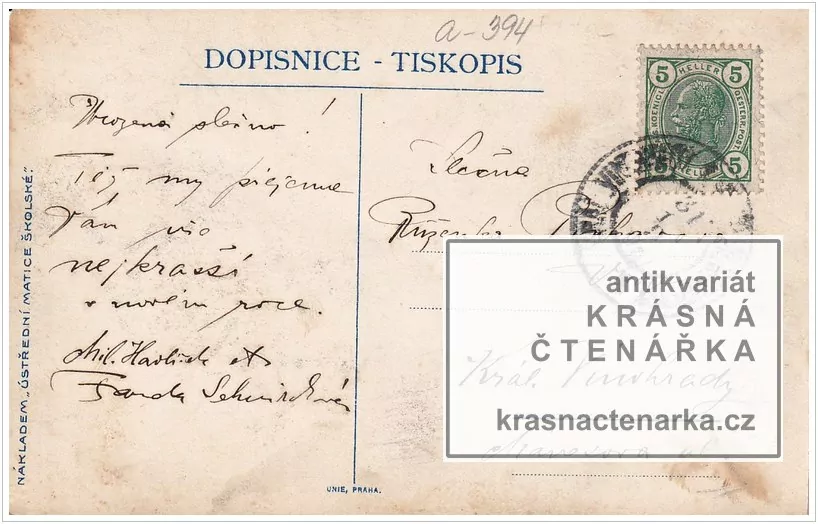 a-394
DOPISNICE - TISKOPIS
5 HELLER 5
KAIS. KOENIGL. OESTERR. POST
5 HELLER 5
Vrozená slečno!
Též my přejeme
Vám vše
nejkrasší
v novém roce.
Mil. Havlíček
Fanda
Slečna
Růženka
Král. Vinohrady
ul.
antikvariát
KRÁSNÁ
ČTENÁŘKA
krasnactenarka.cz
NÁKLADEM „ÚSTŘEDNÍ MATICE ŠKOLSKÉ".
UNIE, PRAHA.